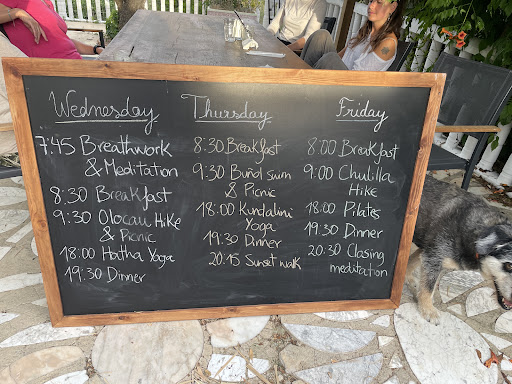 Wednesday
7:45 Breathwork
& Meditation
8:30 Breakfast
9:30 Olocau Hike
& Picnic
18:00 Hatha Yoga
19:30 Dinner
Thursday
8:30 Breakfast
9:30 Buñol swim
& Picnic
18:00 Kundalini
Yoga
19:30 Dinner
20:15 Sunset walk
Friday
8:00 Breakfast
9:00 Chulilla
Hike
18:00 Pilates
19:30 Dinner
20:30 Clasing
meditation